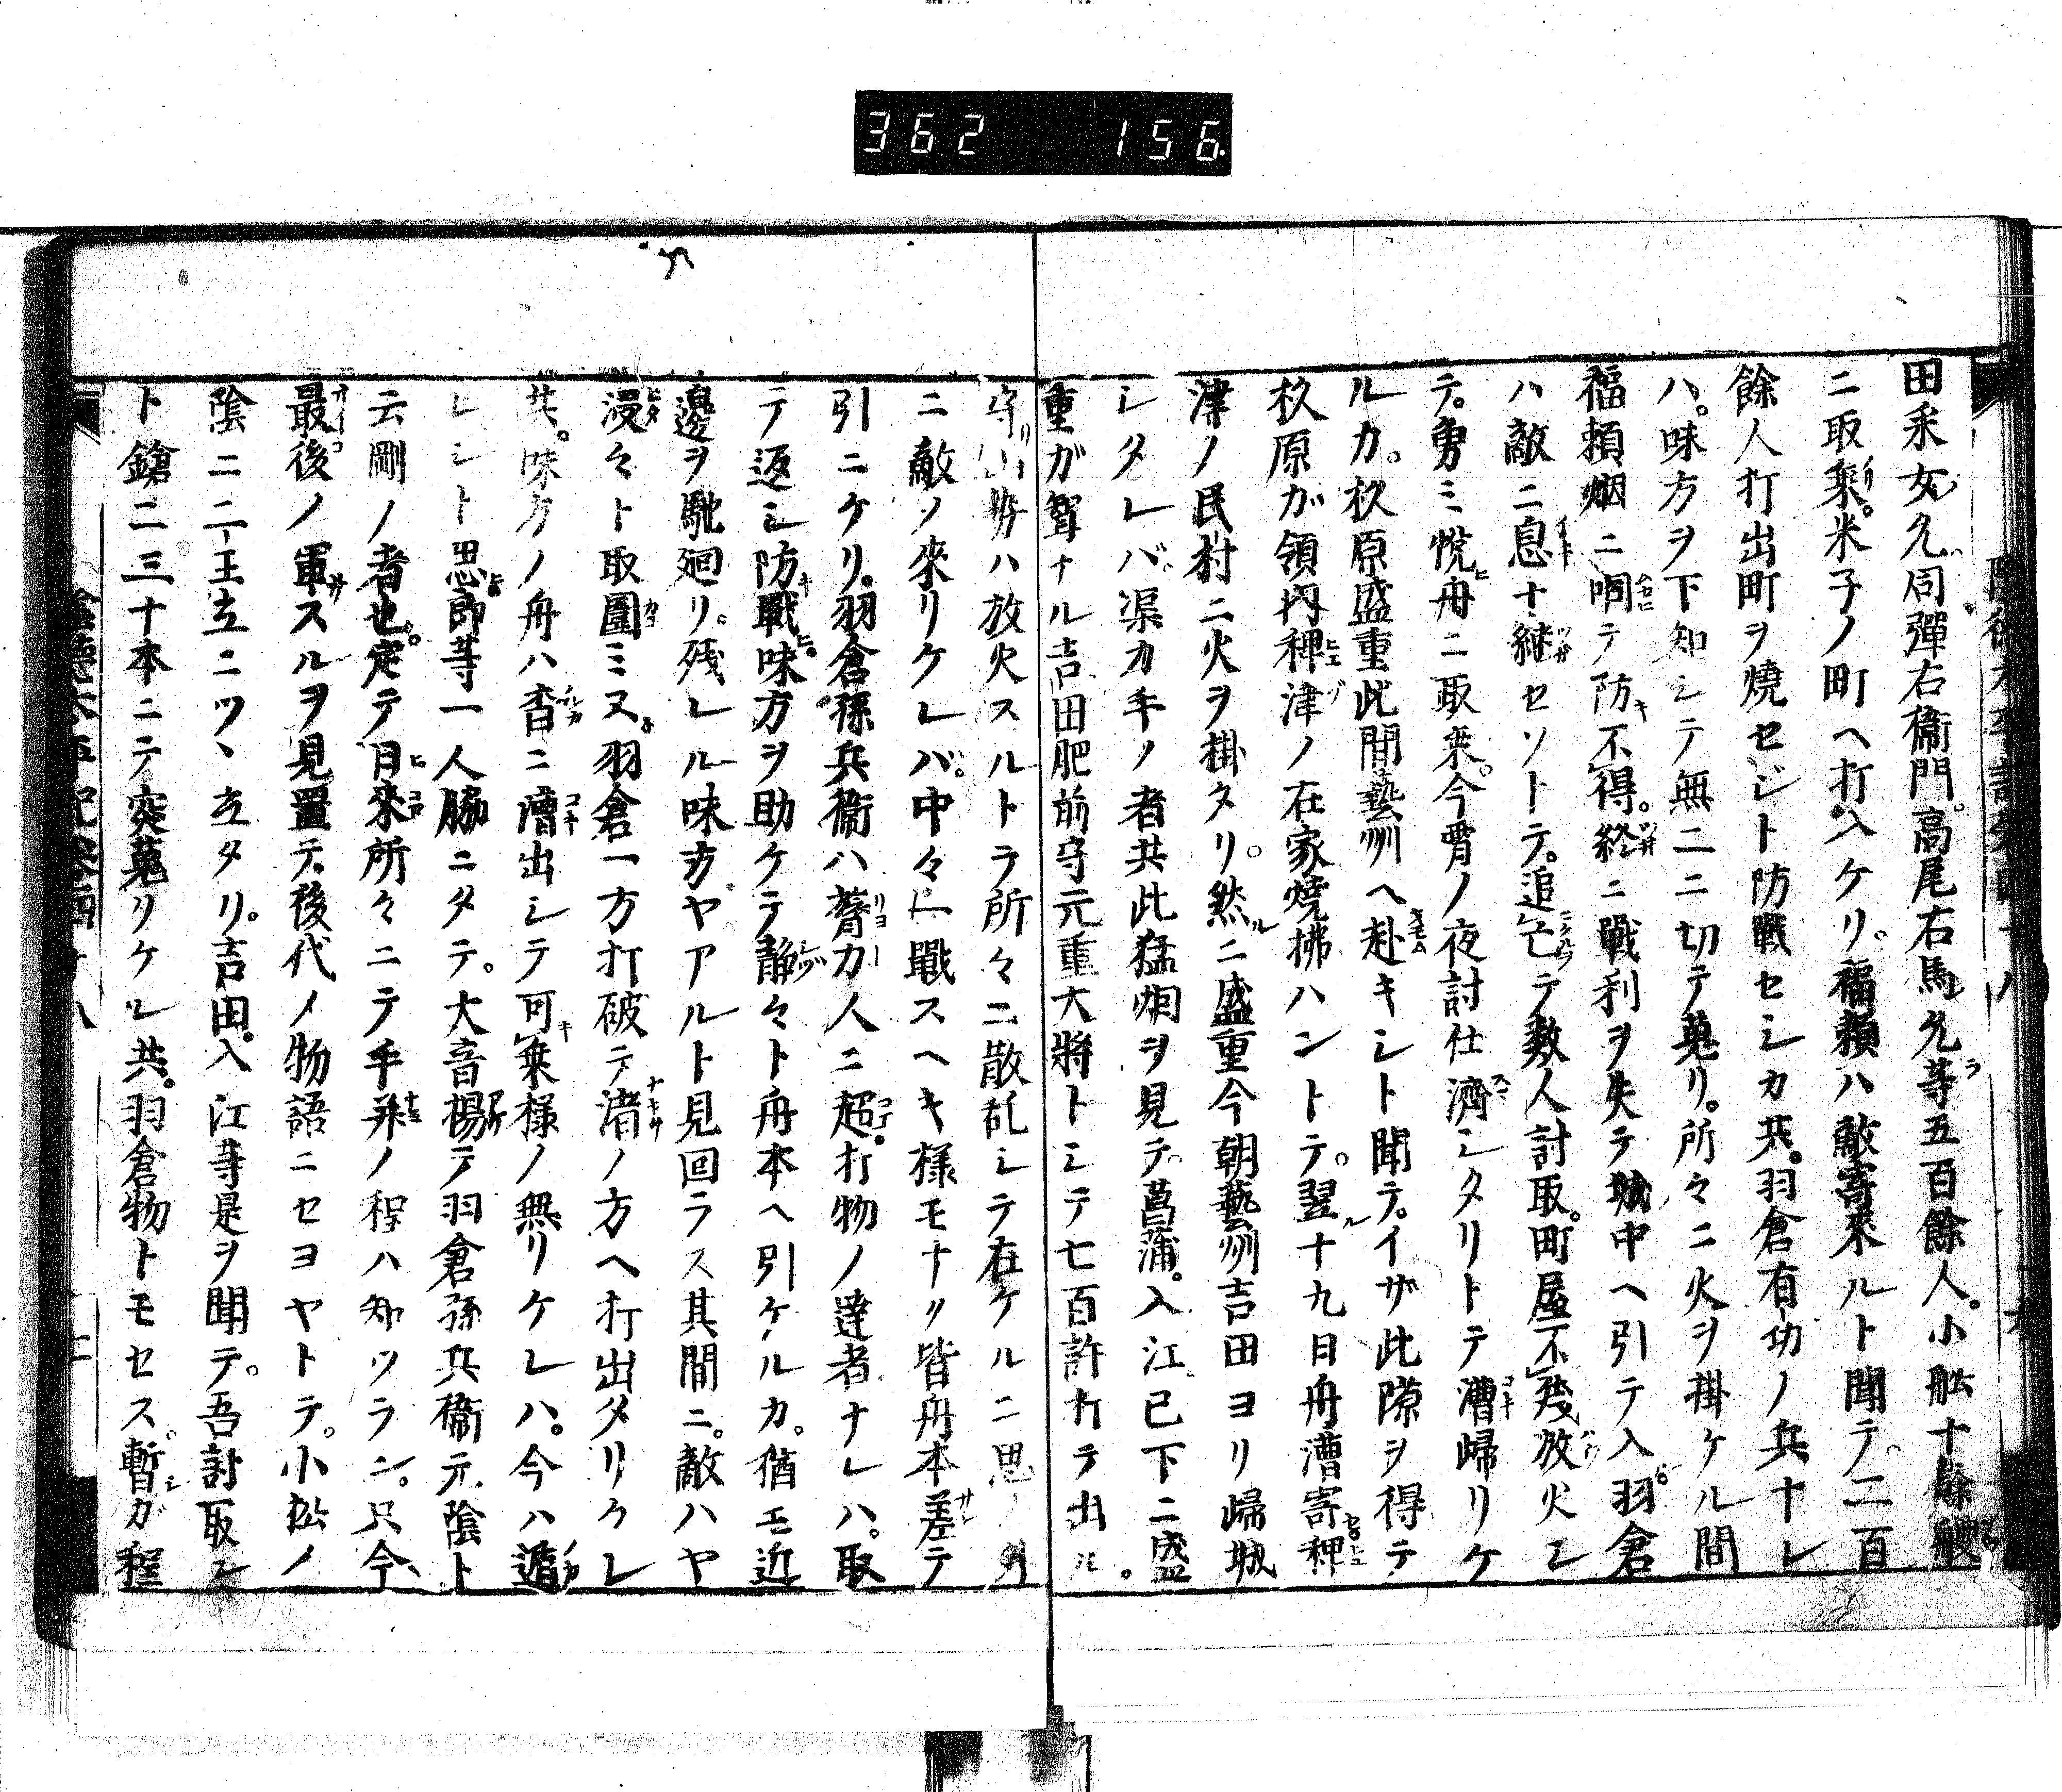 362 156
田釆女允。同彈右衞門。高尾右馬允等五百餘人。小舩十餘艘
ニ取乘。米子ノ町ヘ打入ケリ。福頼ハ敵寄來ルト聞テ。二百
餘人打出町ヲ燒セジト防戰セシカ共。羽倉有功ノ兵ナレ
ハ。味方ヲ下知シテ無二ニ切テ蒐リ。所々ニ火ヲ掛ケル間
福頼烟ニ咽テ防不得。終ニ戰利ヲ失テ城中ヘ引テ入。羽倉
ハ敵ニ息ナ継セソトテ。追亡テ数人討取。町屋不残放火シ
テ。勇ミ悦舟ニ取乘。今霄ノ夜討仕濟シタリトテ漕歸リケ
ルカ。杦原盛重此間藝州ヘ赴キシト聞テ。イザ此隙ヲ得テ
杦原ガ領内稗津ノ在家燒拂ハントテ。翌十九日舟漕寄稗
津ノ民村ニ火ヲ掛タリ。然ニ盛重今朝藝州吉田ヨリ歸城
シタレバ渠カ手ノ者共此猛烟ヲ見テ。菖蒲。入江已下ニ盛
重ガ聟ナル吉田肥前守元重大將トシテ七百許打テ出ル。
守山勢ハ放火スルトラ所々ニ散乱シテ在ケルニ思ノ外
ニ敵ノ來リケレバ。中々一戰スヘキ様モナク皆舟本差テ
引ニケリ。羽倉孫兵衞ハ膂力人ニ超。打物ノ達者ナレハ。取
テ返シ防戰味方ヲ助ケテ静々ト舟本ヘ引ケルカ。猶モ近
邊ヲ馳廻リ。残レル味方ヤアルト見回ラス其間ニ。敵ハヤ
漫々ト取圍ミヌ。羽倉一方打破テ渚ノ方ヘ打出タリクレ
共。味方ノ舟ハ杳ニ漕出シテ可乘様ノ無リケレハ。今ハ遁
レシト思郎等一人脇ニタテ。大音揚テ羽倉孫兵衞元陰ト
云剛ノ者也。定テ日來所々ニテ手並ノ程ハ知ツラン。只今
最後ノ軍スルヲ見置テ。後代ノ物語ニセヨヤトテ。小松ノ
陰ニ二王立ニツヽ立タリ。吉田。入江等是ヲ聞テ。吾討取レ
ト鎗二三十本ニテ突蒐リケレ共。羽倉物トモセス。暫ガ程